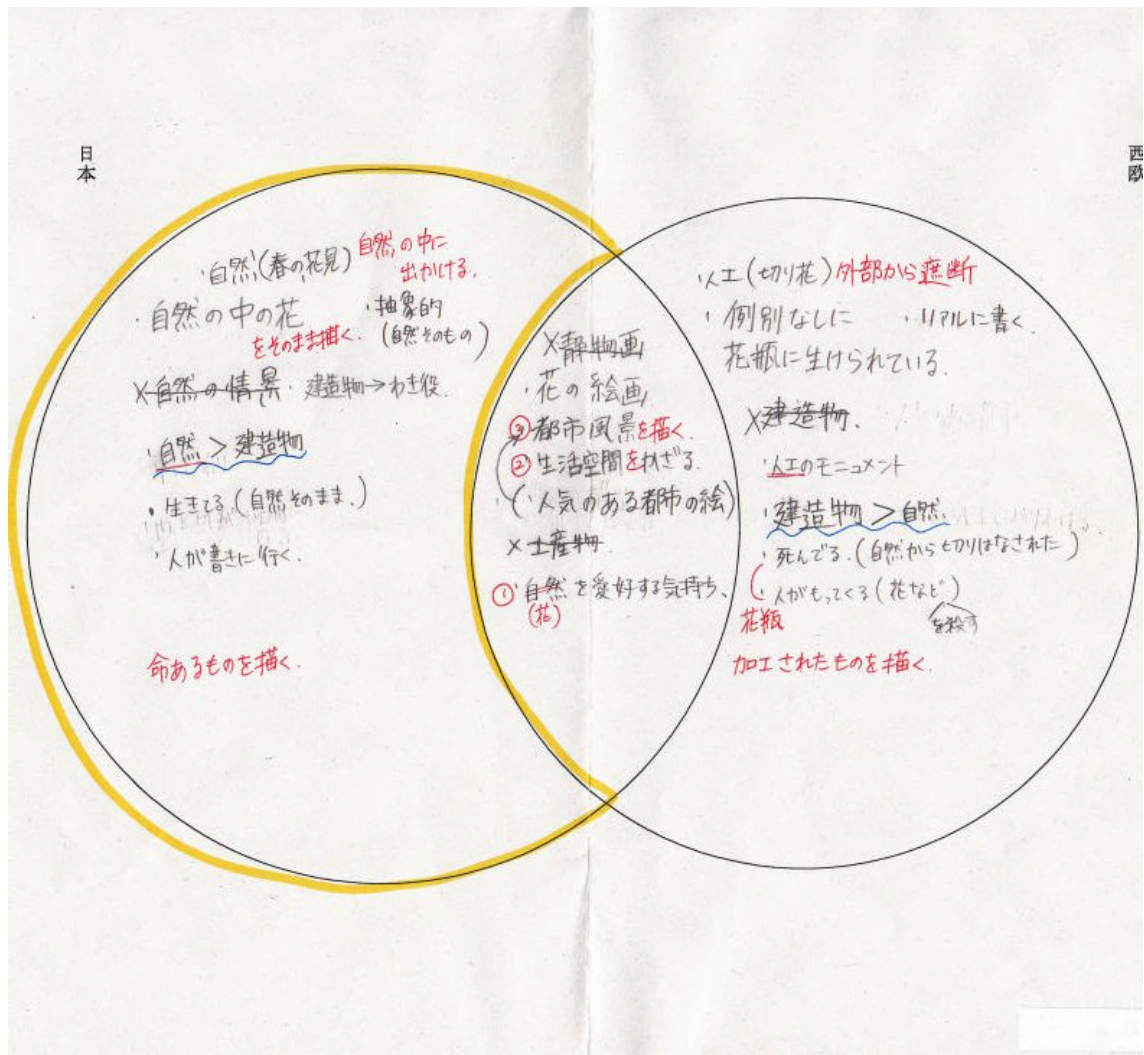 日本
西欧
・自然(春の花見)
自然の中に
出かける.
・自然の中の花
をそのまま描く.
・抽象的
(自然そのもの)
×自然の情景
・建造物→わき役.
・自然>建造物
・生きてる(自然そのまま.)
・人が書きに行く.
命あるものを描く.
×静物画
・花の絵画
③都市風景を描く.
②生活空間をかざる.
・(人気のある都市の絵)
×土産物
①自然を愛好する気持ち、
(花)
・人工(切り花)外部から遮断
・例別なしに
・リアルに書く.
花瓶に生けられている.
×建造物.
・人工のモニュメント
建造物>自然.
・死んでる.(自然から切りはなされた)
・人がもってくる(花など)
を殺す
花瓶
加工されたものを描く.